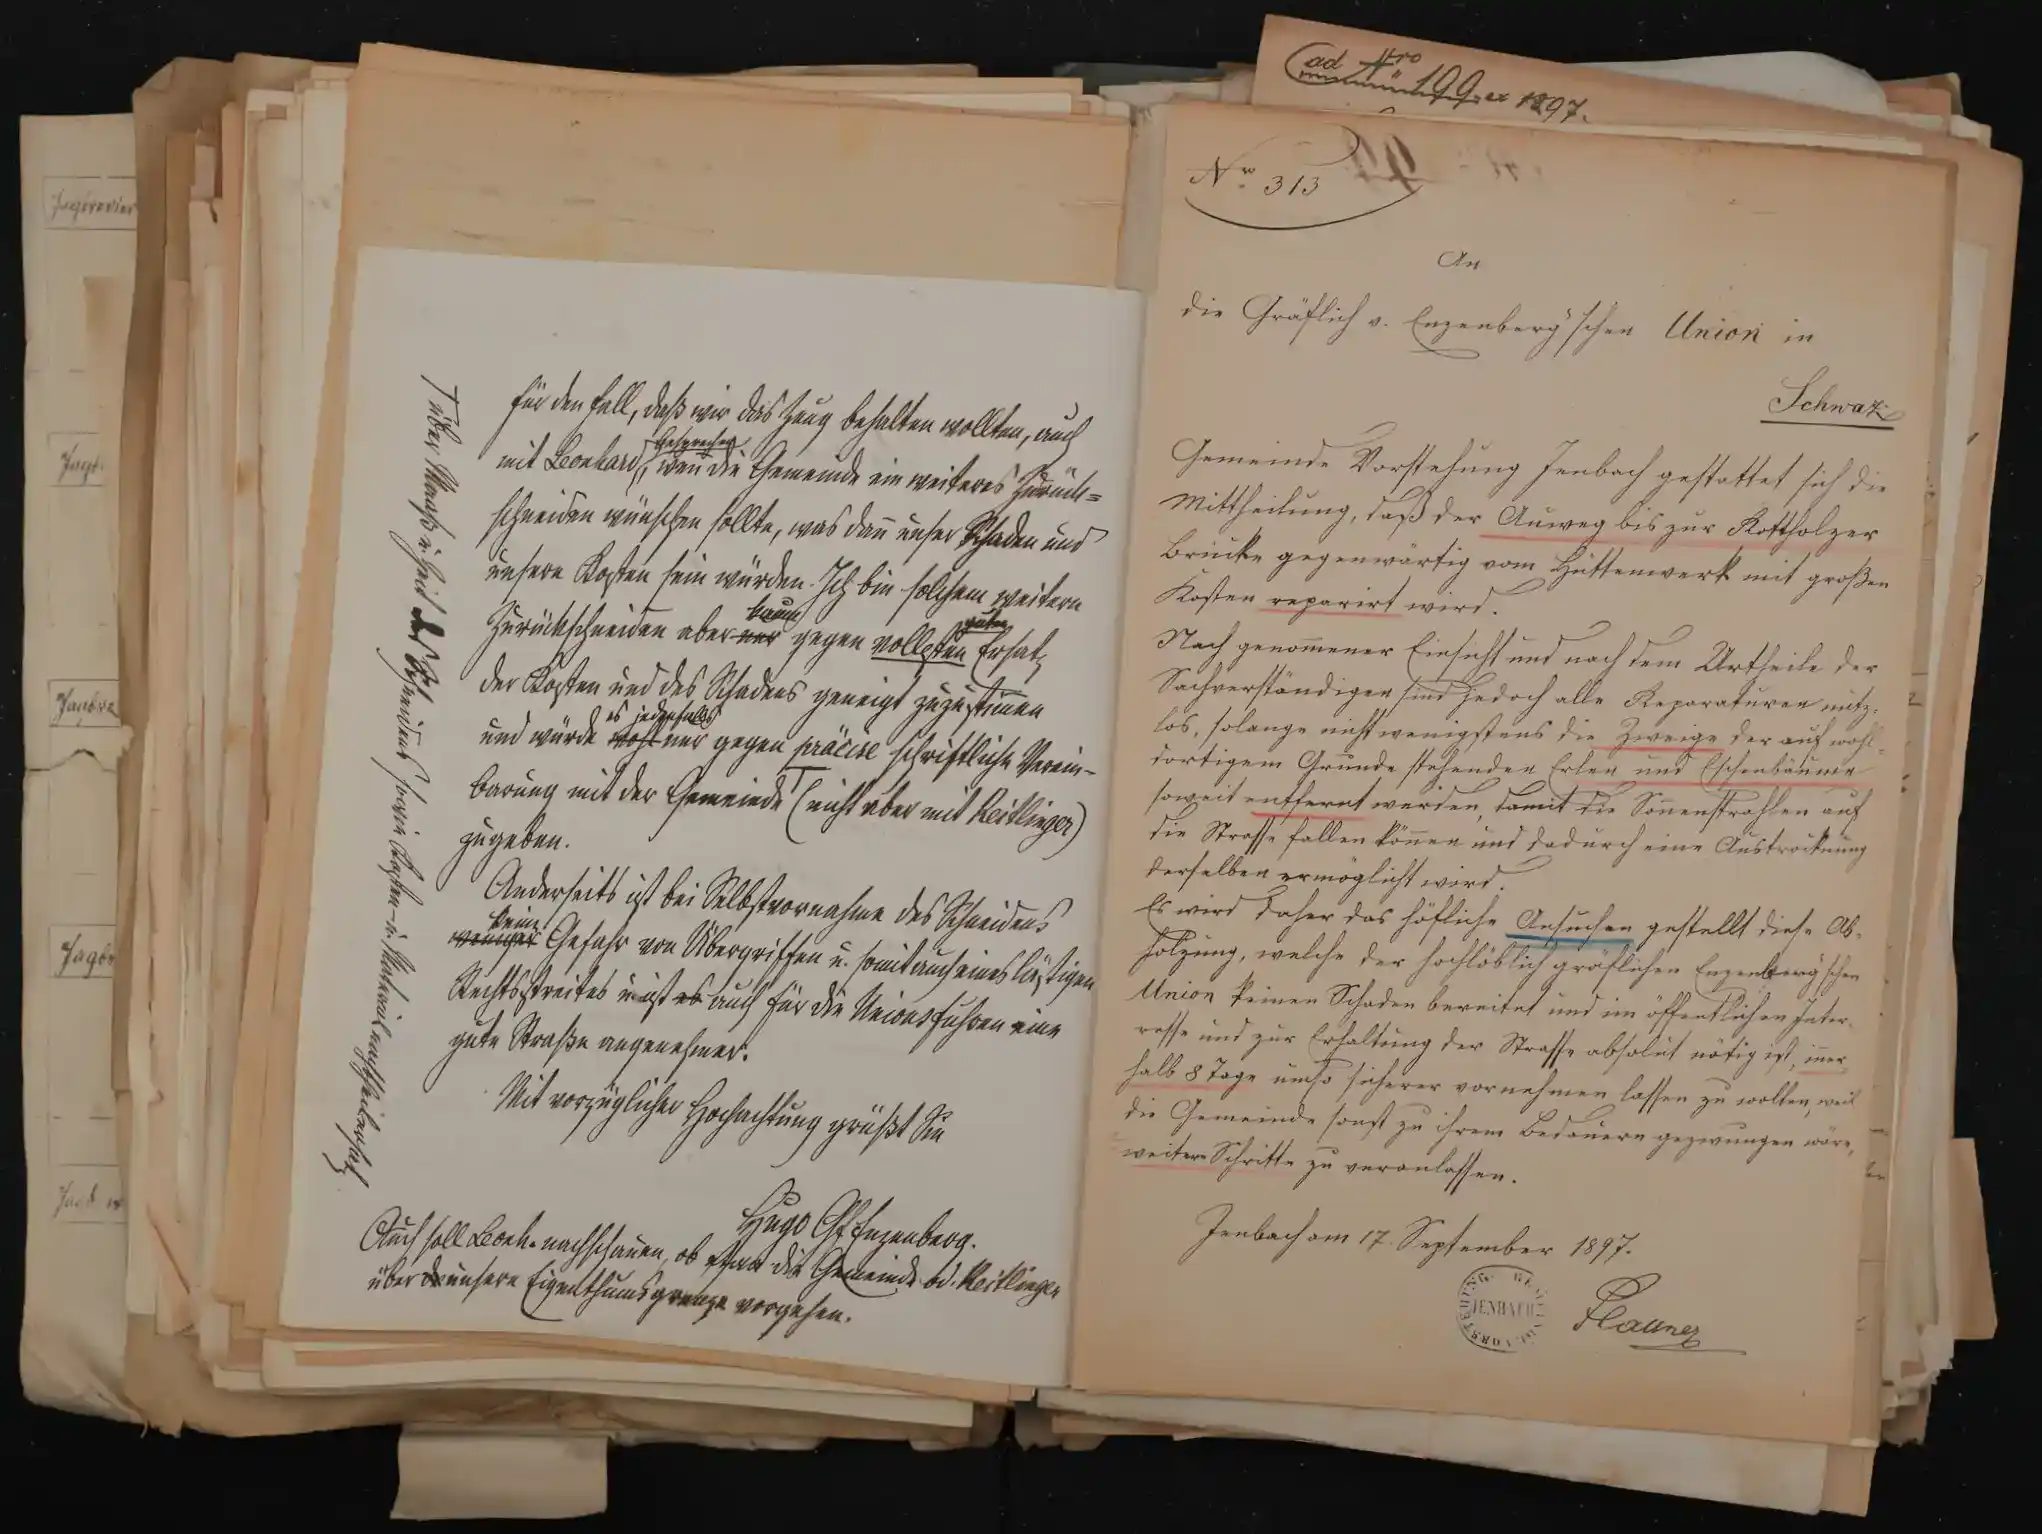 für den Fall, daß wir das Zeug behalten wollten, auch
mit Leonhard, gesprochen wen die Gemeinde ein weiteres Zurück=
schneiden wünschen sollte, was dan̄ unser Schaden und
unsere Kosten sein würden. Ich bin solchem weitern
Zurückschneiden aber nur kaum gegen vollsten guten Ersatz
der Kosten und des Schadens geneigt zuzustim̄en
und würde wohl es jedenfalls nur gegen präcise schriftliche Verein-
barung mit der Gemeinde (nicht aber mit Reitlinger)
zugeben.
Anderseits ist bei Selbstvornahme des Schneidens
weniger keine Gefahr von Übergriffen u. somit auch eines lästigen
Rechtsstreites u. ist es auch für die Unionsfuhren eine
gute Straße angenehmer.
Mit vorzüglicher Hochachtung grüßt Sie
Hugo Gf Enzenberg.
Auch soll Leonh. nachschauen, ob etwa die Gemeinde od. Reitlinger
über unsere Eigenthumsgrenze vorgehen.
über Maaß u. Zeit des Schneidens sowie Kosten- u.
ad Nro 199 ex 1897.
Nr. 313
An
die Gräflich v. Enzenberg'schen Union in
Schwaz
Gemeinde Vorstehung Jenbach gestattet sich die
Mittheilung, daß der Auweg bis zur Rottholzer
Brücke gegenwärtig vom Hüttenwerk mit großen
Kosten reparirt wird.
Nach genom̄ener Einsicht und nach dem Urtheile der
Sachverständigen sind jedoch alle Reparaturen nutz-
los, solange nicht wenigstens die Zweige der auf wohl-
dortigem Grunde stehenden Erlen und Eschenbäume
soweit entfernt werden, damit die Son̄enstrahlen auf
die Strasse fallen kön̄en und dadurch eine Austrocknung
derselben ermöglicht wird.
Es wird daher das höfliche Ansuchen gestellt diese Ab-
holzung, welche der hochlöblich gräflichen Enzenberg'schen
Union keinen Schaden bereitet und im öffentlichen Inter-
esse und zur Erhaltung der Strasse absolut nötig ist, in̄er-
halb 8 Tage umso sicherer vornehmen lassen zu wollen, weil
die Gemeinde sonst zu ihrem Bedauern gezwungen wäre,
weitere Schritte zu veranlassen.
Jenbach am 17. September 1897.
JENBACH
Jagdrevier